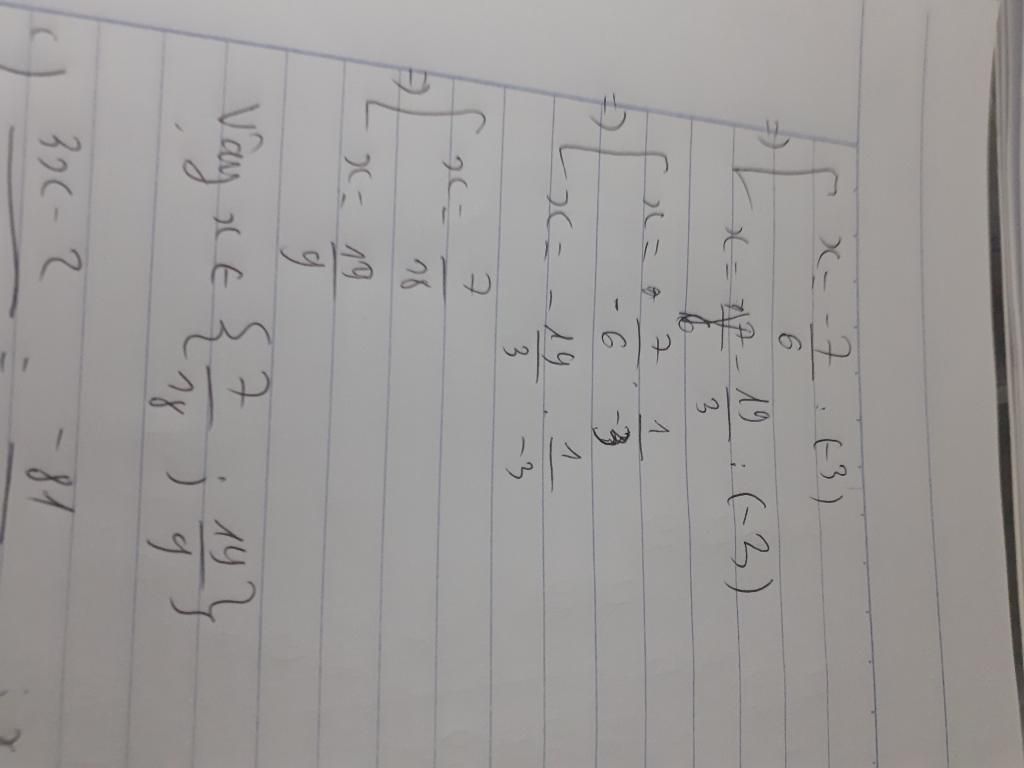 => [ x = -7/6 : (-3)
x = -19/3 : (-3)
=> [ x = 7/-6 . 1/-3
x = -19/3 . 1/-3
=> [ x = 7/18
x = 19/9
Vậy x ∈ {7/18 ; 19/9}
c) 3x - 2 = -81